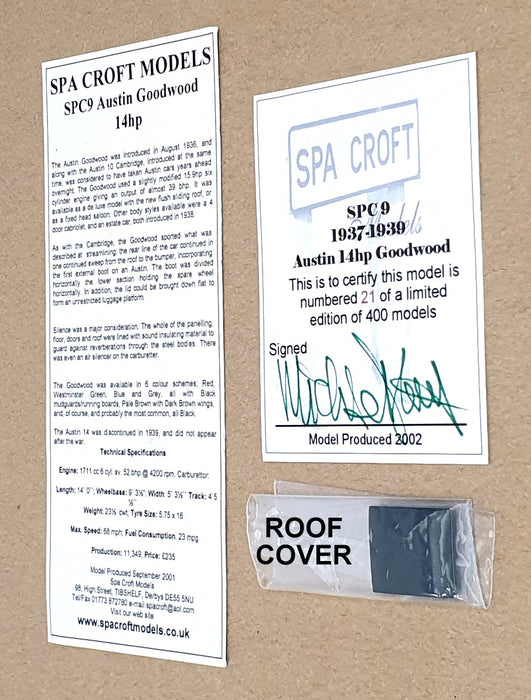 SPA CROFT MODELS
SPC9 Austin Goodwood
14hp
The Austin Goodwood was introduced in August 1936, and
along with the Austin 10 Cambridge, introduced at the same
time, was considered to have taken Austin cars years ahead
overnight. The Goodwood used a slightly modified 15.9hp six
cylinder engine giving an output of almost 39 bhp. It was
available as a de luxe model with the new flush sliding roof, or
as a fixed head saloon. Other body styles available were a 4
door cabriolet, and an estate car, both introduced in 1938.
As with the Cambridge, the Goodwood sported what was
described at streamlining; the rear line of the car continued in
one continued sweep from the roof to the bumper, incorporating
the first external boot on an Austin. The boot was divided
horizontally the lower section holding the spare wheel
horizontally. In addition, the lid could be brought down flat to
form an unrestricted luggage platform.
Silence was a major consideration. The whole of the panelling,
floor, doors and roof were lined with sound insulating material to
guard against reverberations through the steel bodies. There
was even an air silencer on the carburetter.
The Goodwood was available in 6 colour schemes; Red,
Westminster Green, Blue and Grey, all with Black
mudguards/running boards, Pale Brown with Dark Brown wings,
and, of course, and probably the most common, all Black.
The Austin 14 was discontinued in 1939, and did not appear
after the war.
Technical Specifications
Engine: 1711 cc 6 cyl. sv. 52 bhp @ 4200 rpm. Carburettor:
Length: 14' 0"; Wheelbase: 9' 3½" Width: 5' 3½" Track: 4' 5
½"
Weight: 23½ cwt; Tyre Size: 5.75 x 16
Max. Speed: 58 mph; Fuel Consumption. 23 mpg
Production: 11,349; Price: £235
Model Produced September 2001
Spa Croft Models
98, High Street, TIBSHELF, Derbys DE55 5NU
Tel/Fax 01773 872780 e-mail spacroft@aol.com
Visit our web site
www.spacroftmodels.co.uk
SPA CROFT
Models
SPC 9
1937-1939
Austin 14hp Goodwood
This is to certify this model is
numbered 21 of a limited
edition of 400 models
Signed
Model Produced 2002
ROOF
COVER